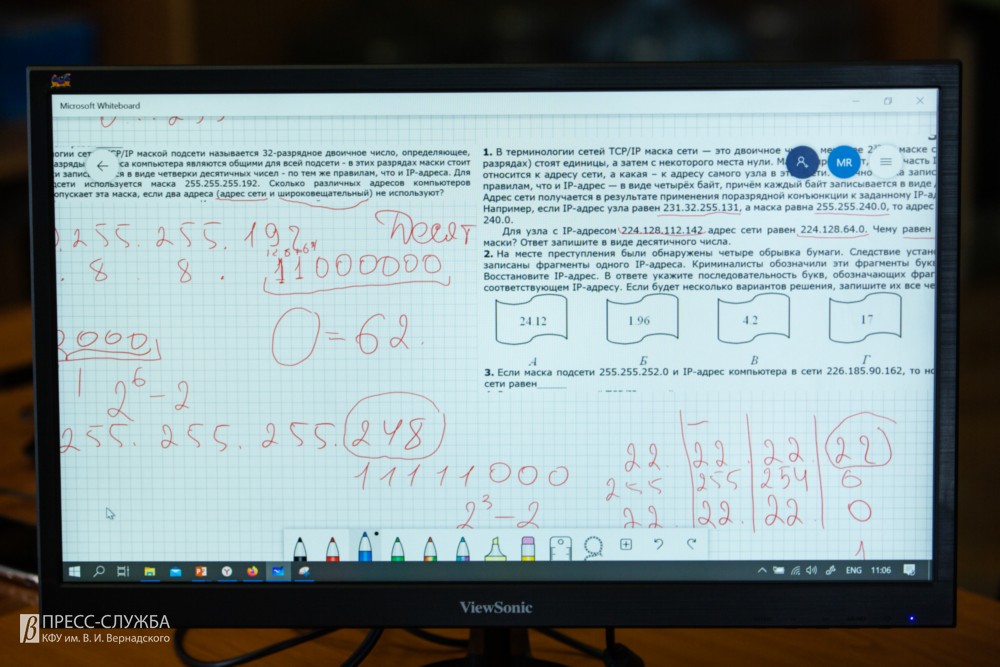 Microsoft Whiteboard
TCP/IP маской подсети называется 32-разрядное двоичное число, определяющее,
компьютера являются общими для всей подсети - в этих разрядах маски стоит
в виде четверки десятичных чисел - по тем же правилам, что и IP-адреса. Для
используется маска 255.255.255.192. Сколько различных адресов компьютеров
эта маска, если два адреса (адрес сети и широковещательный) не используют?
255. 255. 192
Десят
8 8. 11000000
0 = 62.
2⁶ - 2
255. 255. 255. 248
11111000
2³ - 2
1. В терминологии сетей TCP/IP маска сети — это двоичное маске
разрядах) стоят единицы, а затем с некоторого места нули. часть
относится к адресу сети, а какая – к адресу самого узла в
правилам, что и IP-адрес — в виде четырёх байт, причём каждый байт записывается в виде
Адрес сети получается в результате применения поразрядной конъюнкции к заданному
Например, если IP-адрес узла равен 231.32.255.131, а маска равна 255.255.240.0, то адрес
240.0.
Для узла с IP-адресом 224.128.112.142 адрес сети равен 224.128.64.0. Чему равен
маски? Ответ запишите в виде десятичного числа.
2. На месте преступления были обнаружены четыре обрывка бумаги. Следствие
записаны фрагменты одного IP-адреса. Криминалисты обозначили эти фрагменты
Восстановите IP-адрес. В ответе укажите последовательность букв, обозначающих
соответствующем IP-адресу. Если будет несколько вариантов решения, запишите их все
24.12 1.96 4.2 17
А Б В Г
3. Если маска подсети 255.255.252.0 и IP-адрес компьютера в сети 226.185.90.162, то
сети равен
22. 22. 22. 22
255 255 254 0
22 22. 22 0
MR
ENG 11:06
ViewSonic
ПРЕСС-СЛУЖБА
КФУ им. В. И. Вернадского